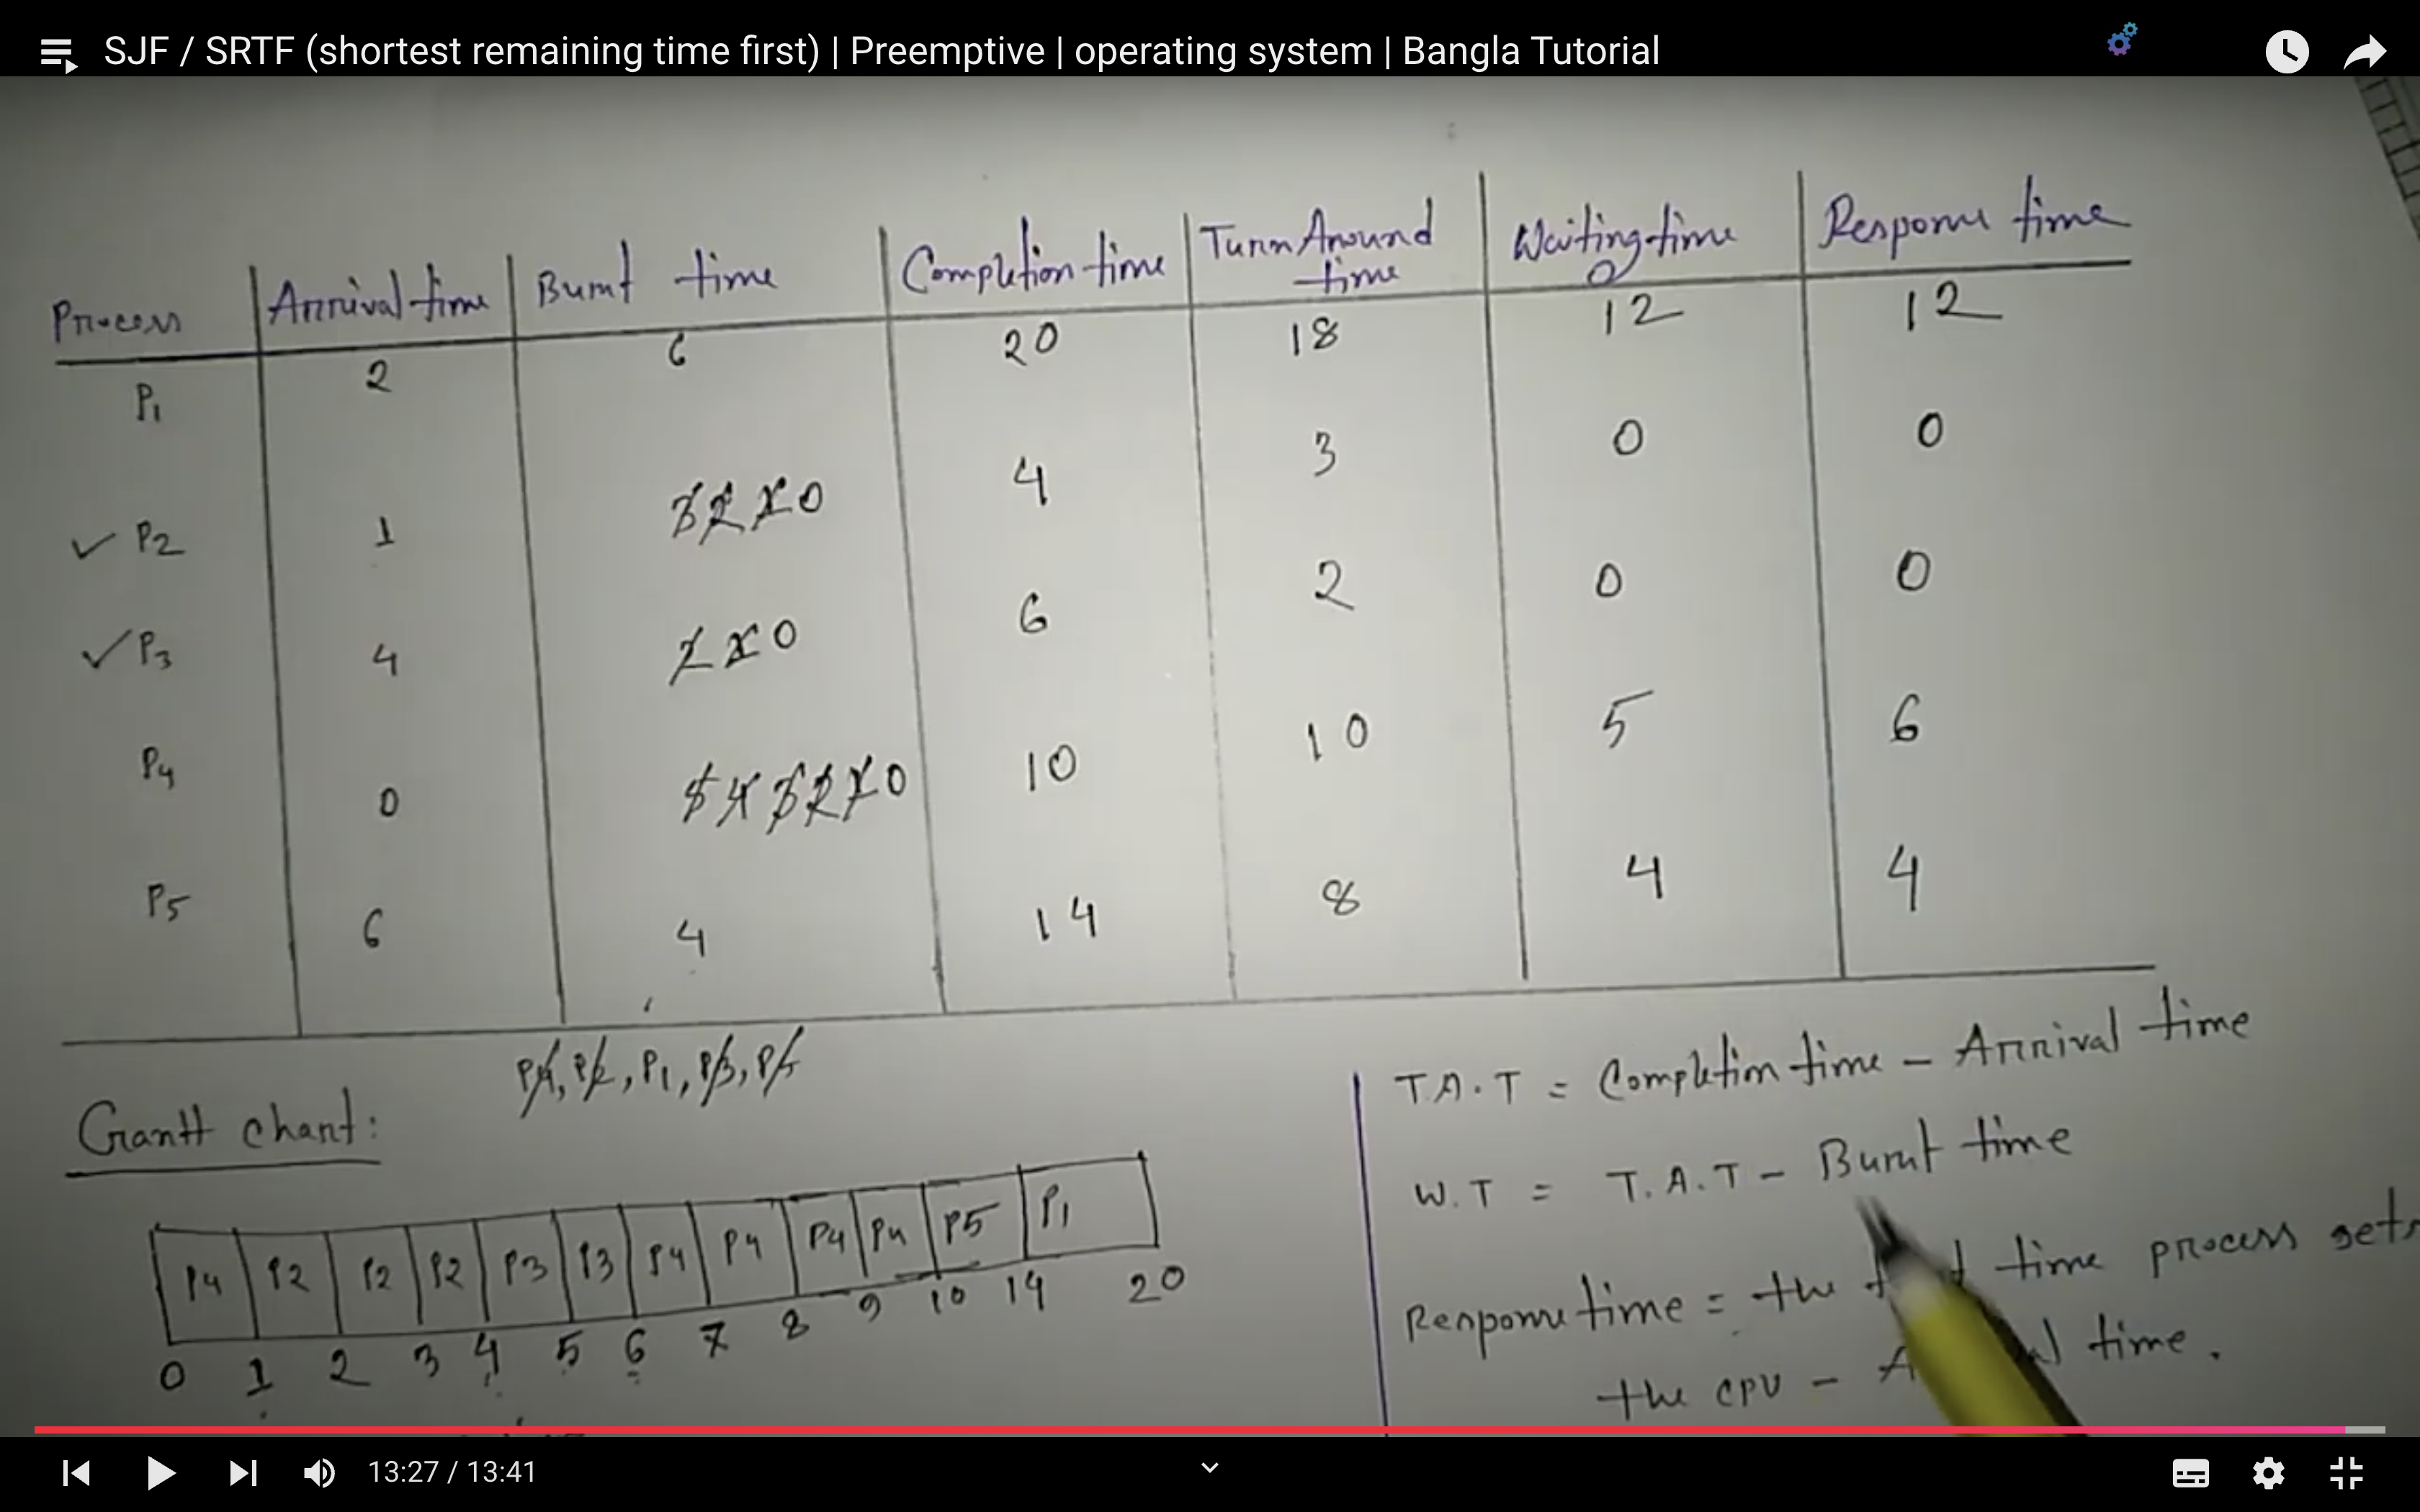 SJF / SRTF (shortest remaining time first) | Preemptive | operating system | Bangla Tutorial
Process Arrival time Burst time Completion time Turn Around time Waiting time Response time
P1 2 6 20 18 12 12
✓ P2 1 3 2 1 0 4 3 0 0
✓ P3 4 2 1 0 6 2 0 0
P4 0 5 4 3 2 1 0 10 10 5 6
P5 6 4 14 8 4 4
P4, P2, P1, P3, P5
Gantt chart:
P4 P2 P2 P2 P3 P3 P4 P4 P4 P4 P5 P1
0 1 2 3 4 5 6 7 8 9 10 14 20
T.A.T = Completion time - Arrival time
W.T = T.A.T - Burst time
Response time = the time process gets
the CPU - time.
13:27 / 13:41